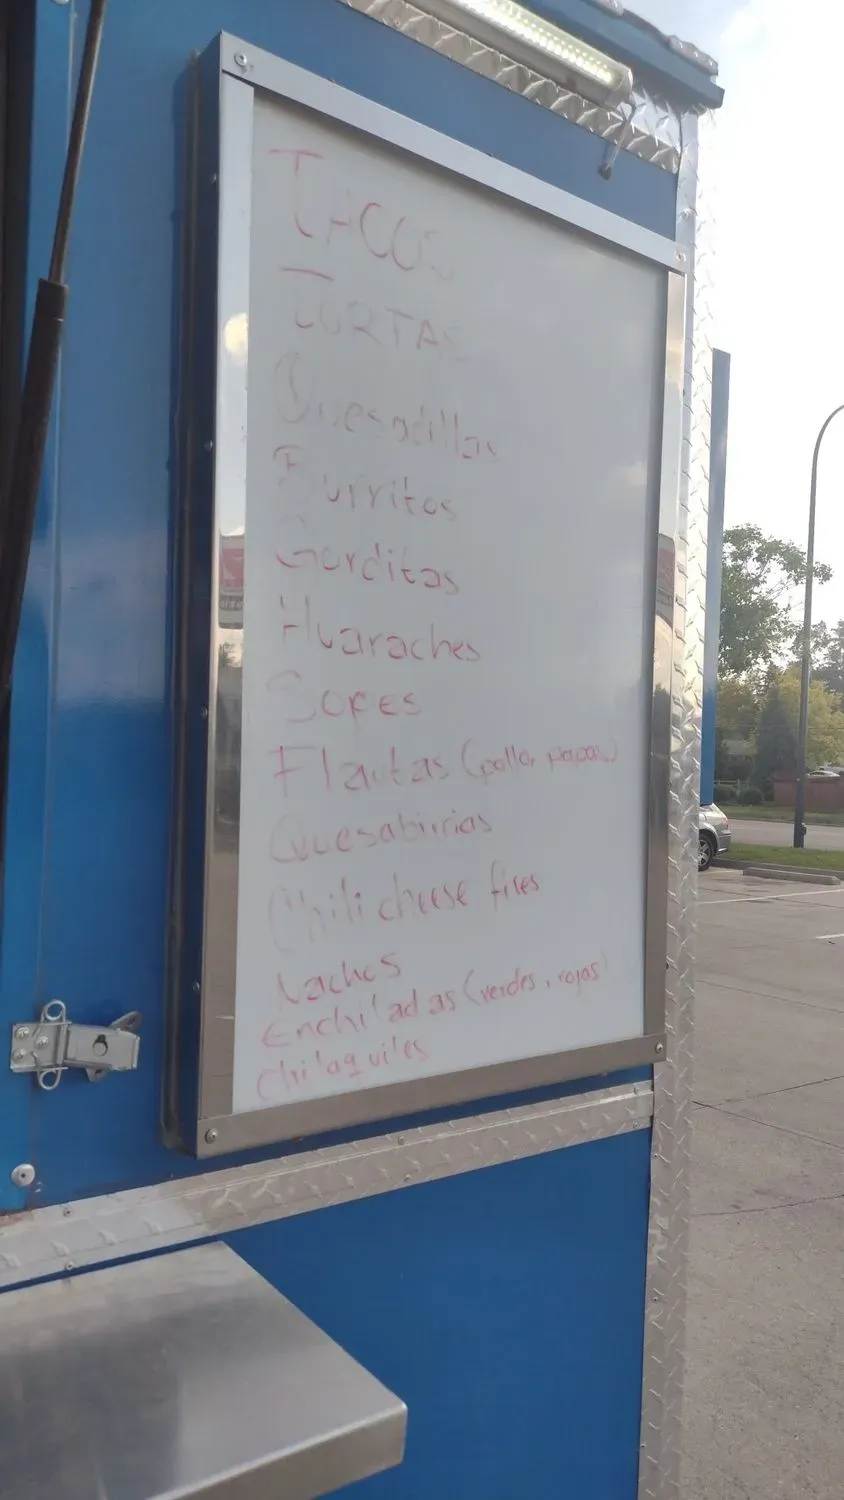 TACOS
TORTAS
Quesadillas
Burritos
Gorditas
Huaraches
Sopes
Flautas (pollo, papas)
Quesabirrias
Chili cheese fires
Nachos
Enchiladas (verdes, rojas)
chilaquiles